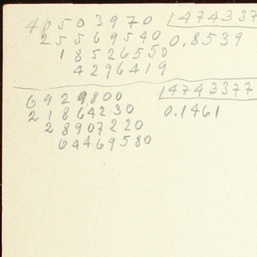 40503970 1474337
25569540 0.8539
18526550
4296419
6929800 14743377
21864230 0.1461
28907220
64469580